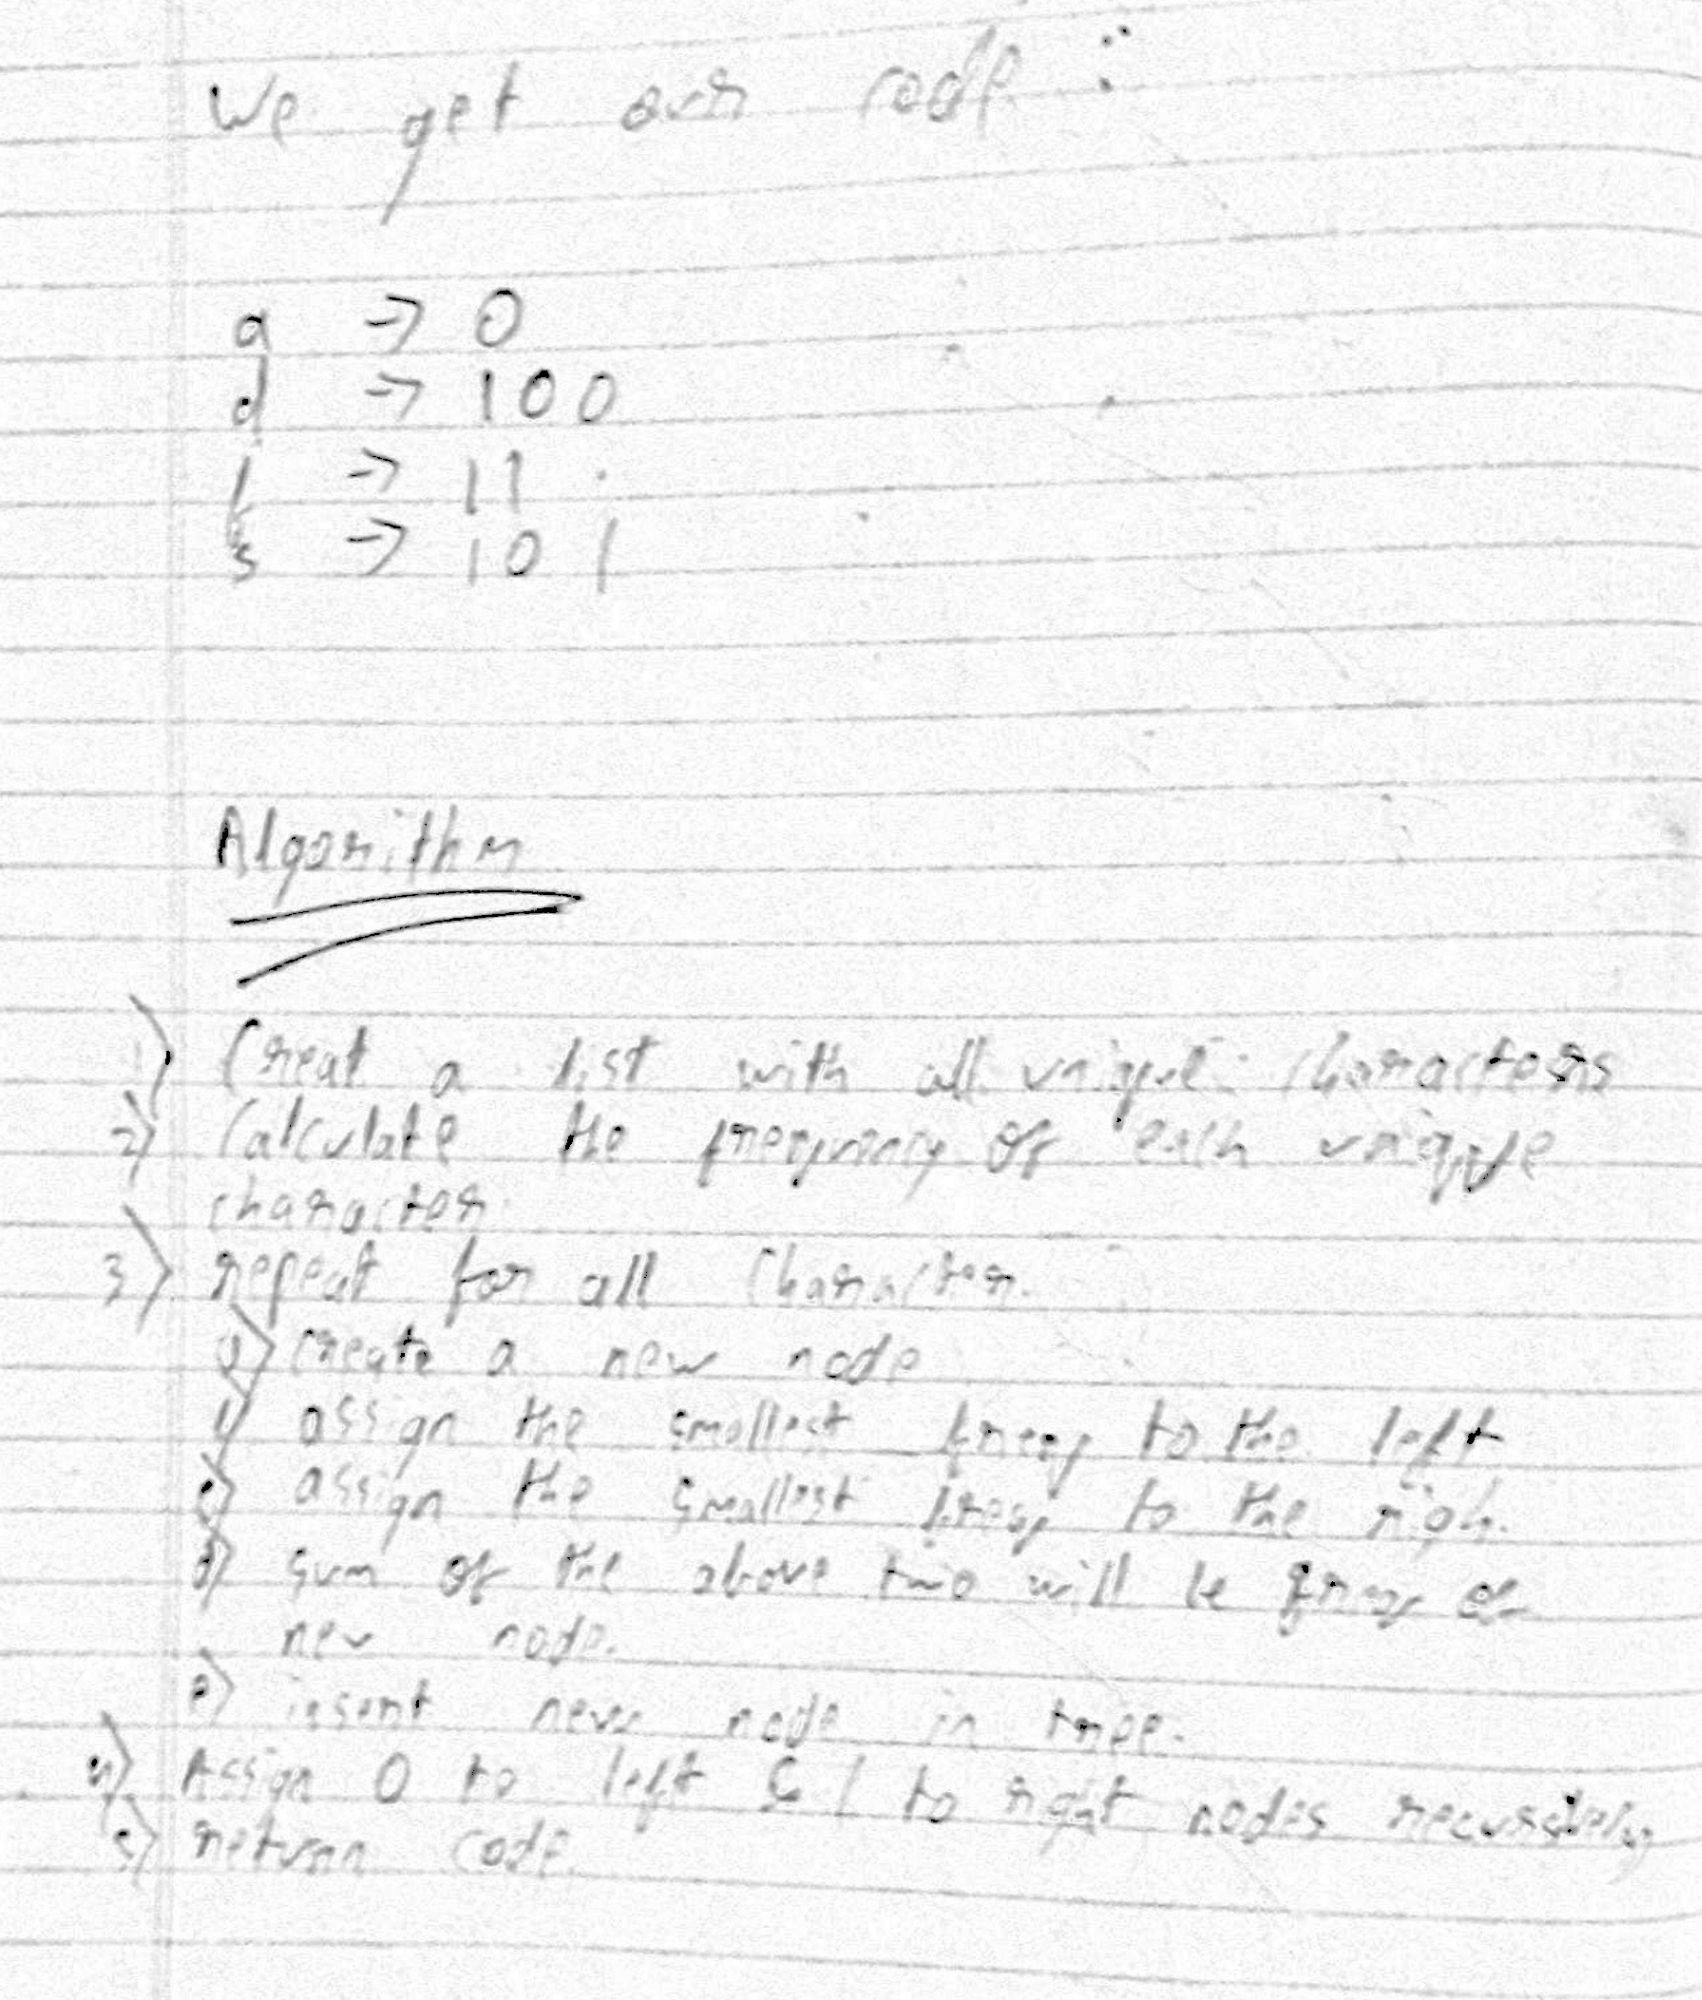 We get our code :
a → 0
d → 100
→ 11
s → 101
Algorithm
1) Creat a list with all unique characters
2) Calculate the frequency of each unique
character
3) repeat for all character.
create a new node
assign the smallest freq to the left
c) assign the smallest freq to the righ.
d) sum of the above two will be freq of
new node.
e) insert new node in tree.
4) Assign 0 to left & 1 to right nodes recursively
5) return code.